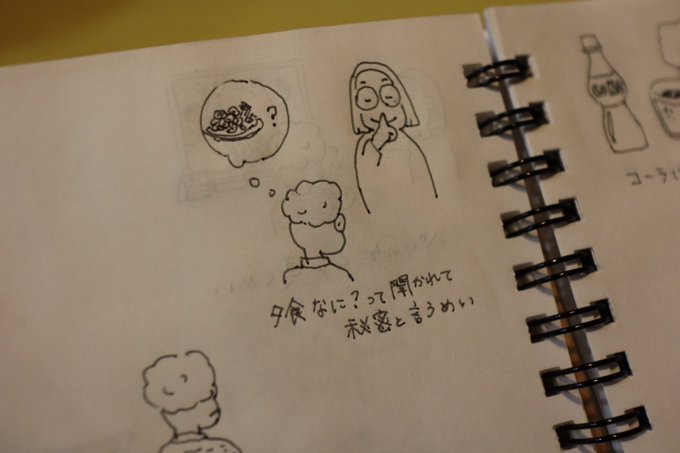 ?
夕食なに?って聞かれて
秘密と言うめい
コーラ